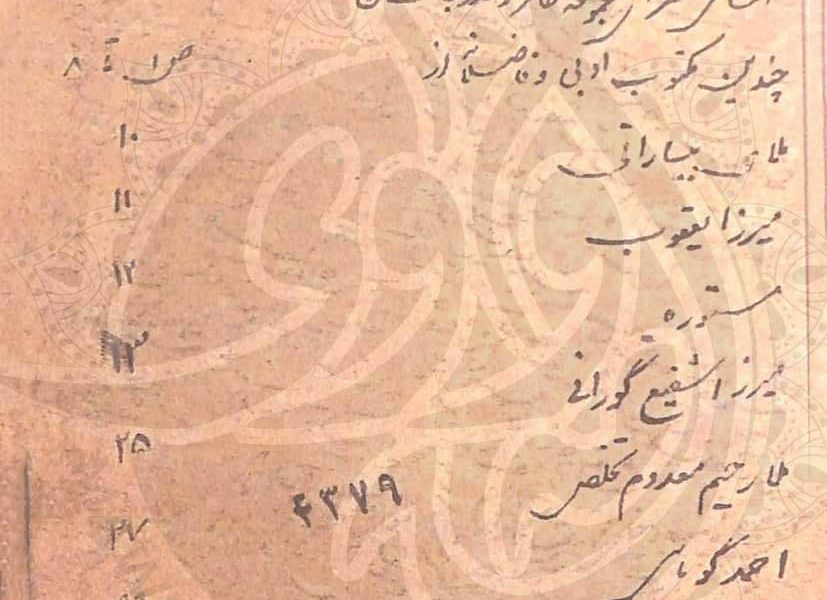 چندین مکتوب ادبی و فاضلانه از ص ۱ تا ۸
ملای بیسارانی ۱۰
میرزا یعقوب ۱۱
مستوره ۱۲
میرزا شفیع گورانی ۱۳
ملا رحیم معدوم تخلص ۲۵
۴۳۷۹
احمد ۲۷